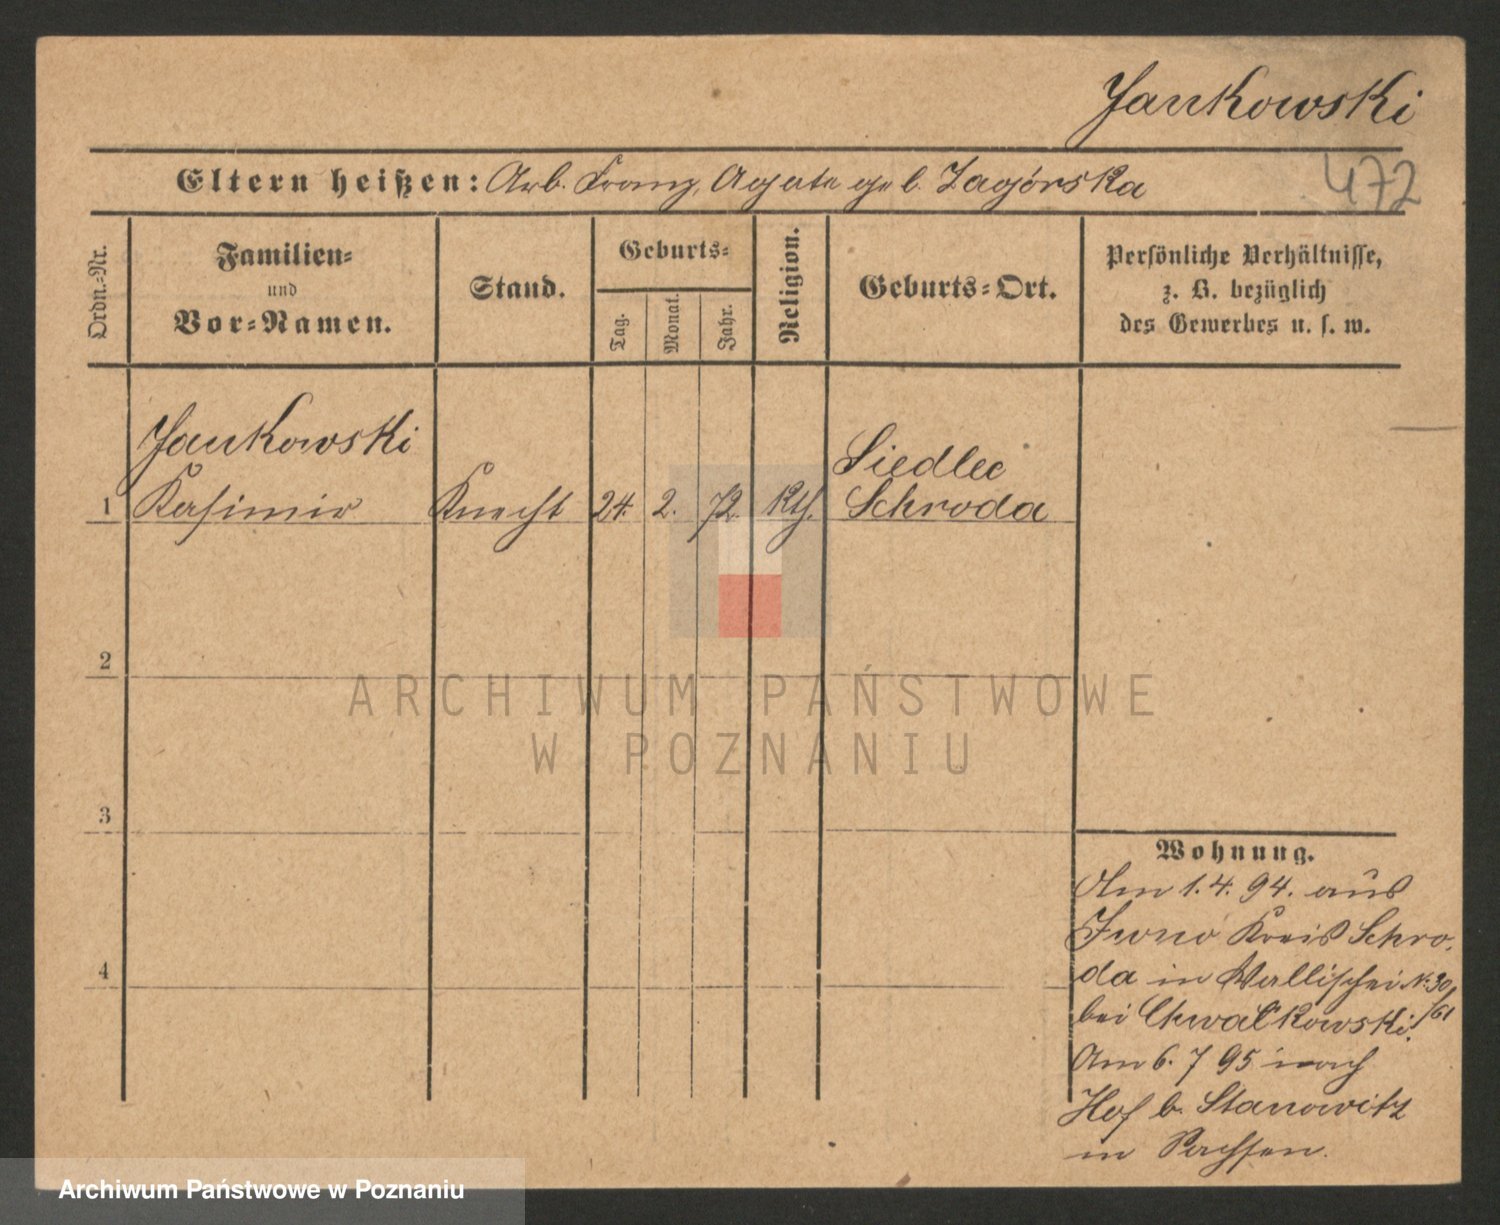 Jankowski
Eltern heißen: Arb. Franz, Agate geb. Zagórska
472
Ordn.-Nr.
Familien-
und
Vor-Namen.
Stand.
Geburts-
Tag.
Monat.
Jahr.
Religion.
Geburts-Ort.
Persönliche Verhältnisse,
z. B. bezüglich
des Gewerbes u. s. w.
Jankowski
Siedlec
1 Kasimir Knecht 24. 2. 72 Kth. Schroda
2
3
4
Wohnung.
Am 1. 4. 94. aus
Iwno Kreis Schro-
da in Wallischei N. 30/61
bei Chwalkowski.
Am 6. 7 95 nach
Hof b. Stanowitz
in Sachsen.
ARCHIWUM PAŃSTWOWE
W POZNANIU
Archiwum Państwowe w Poznaniu